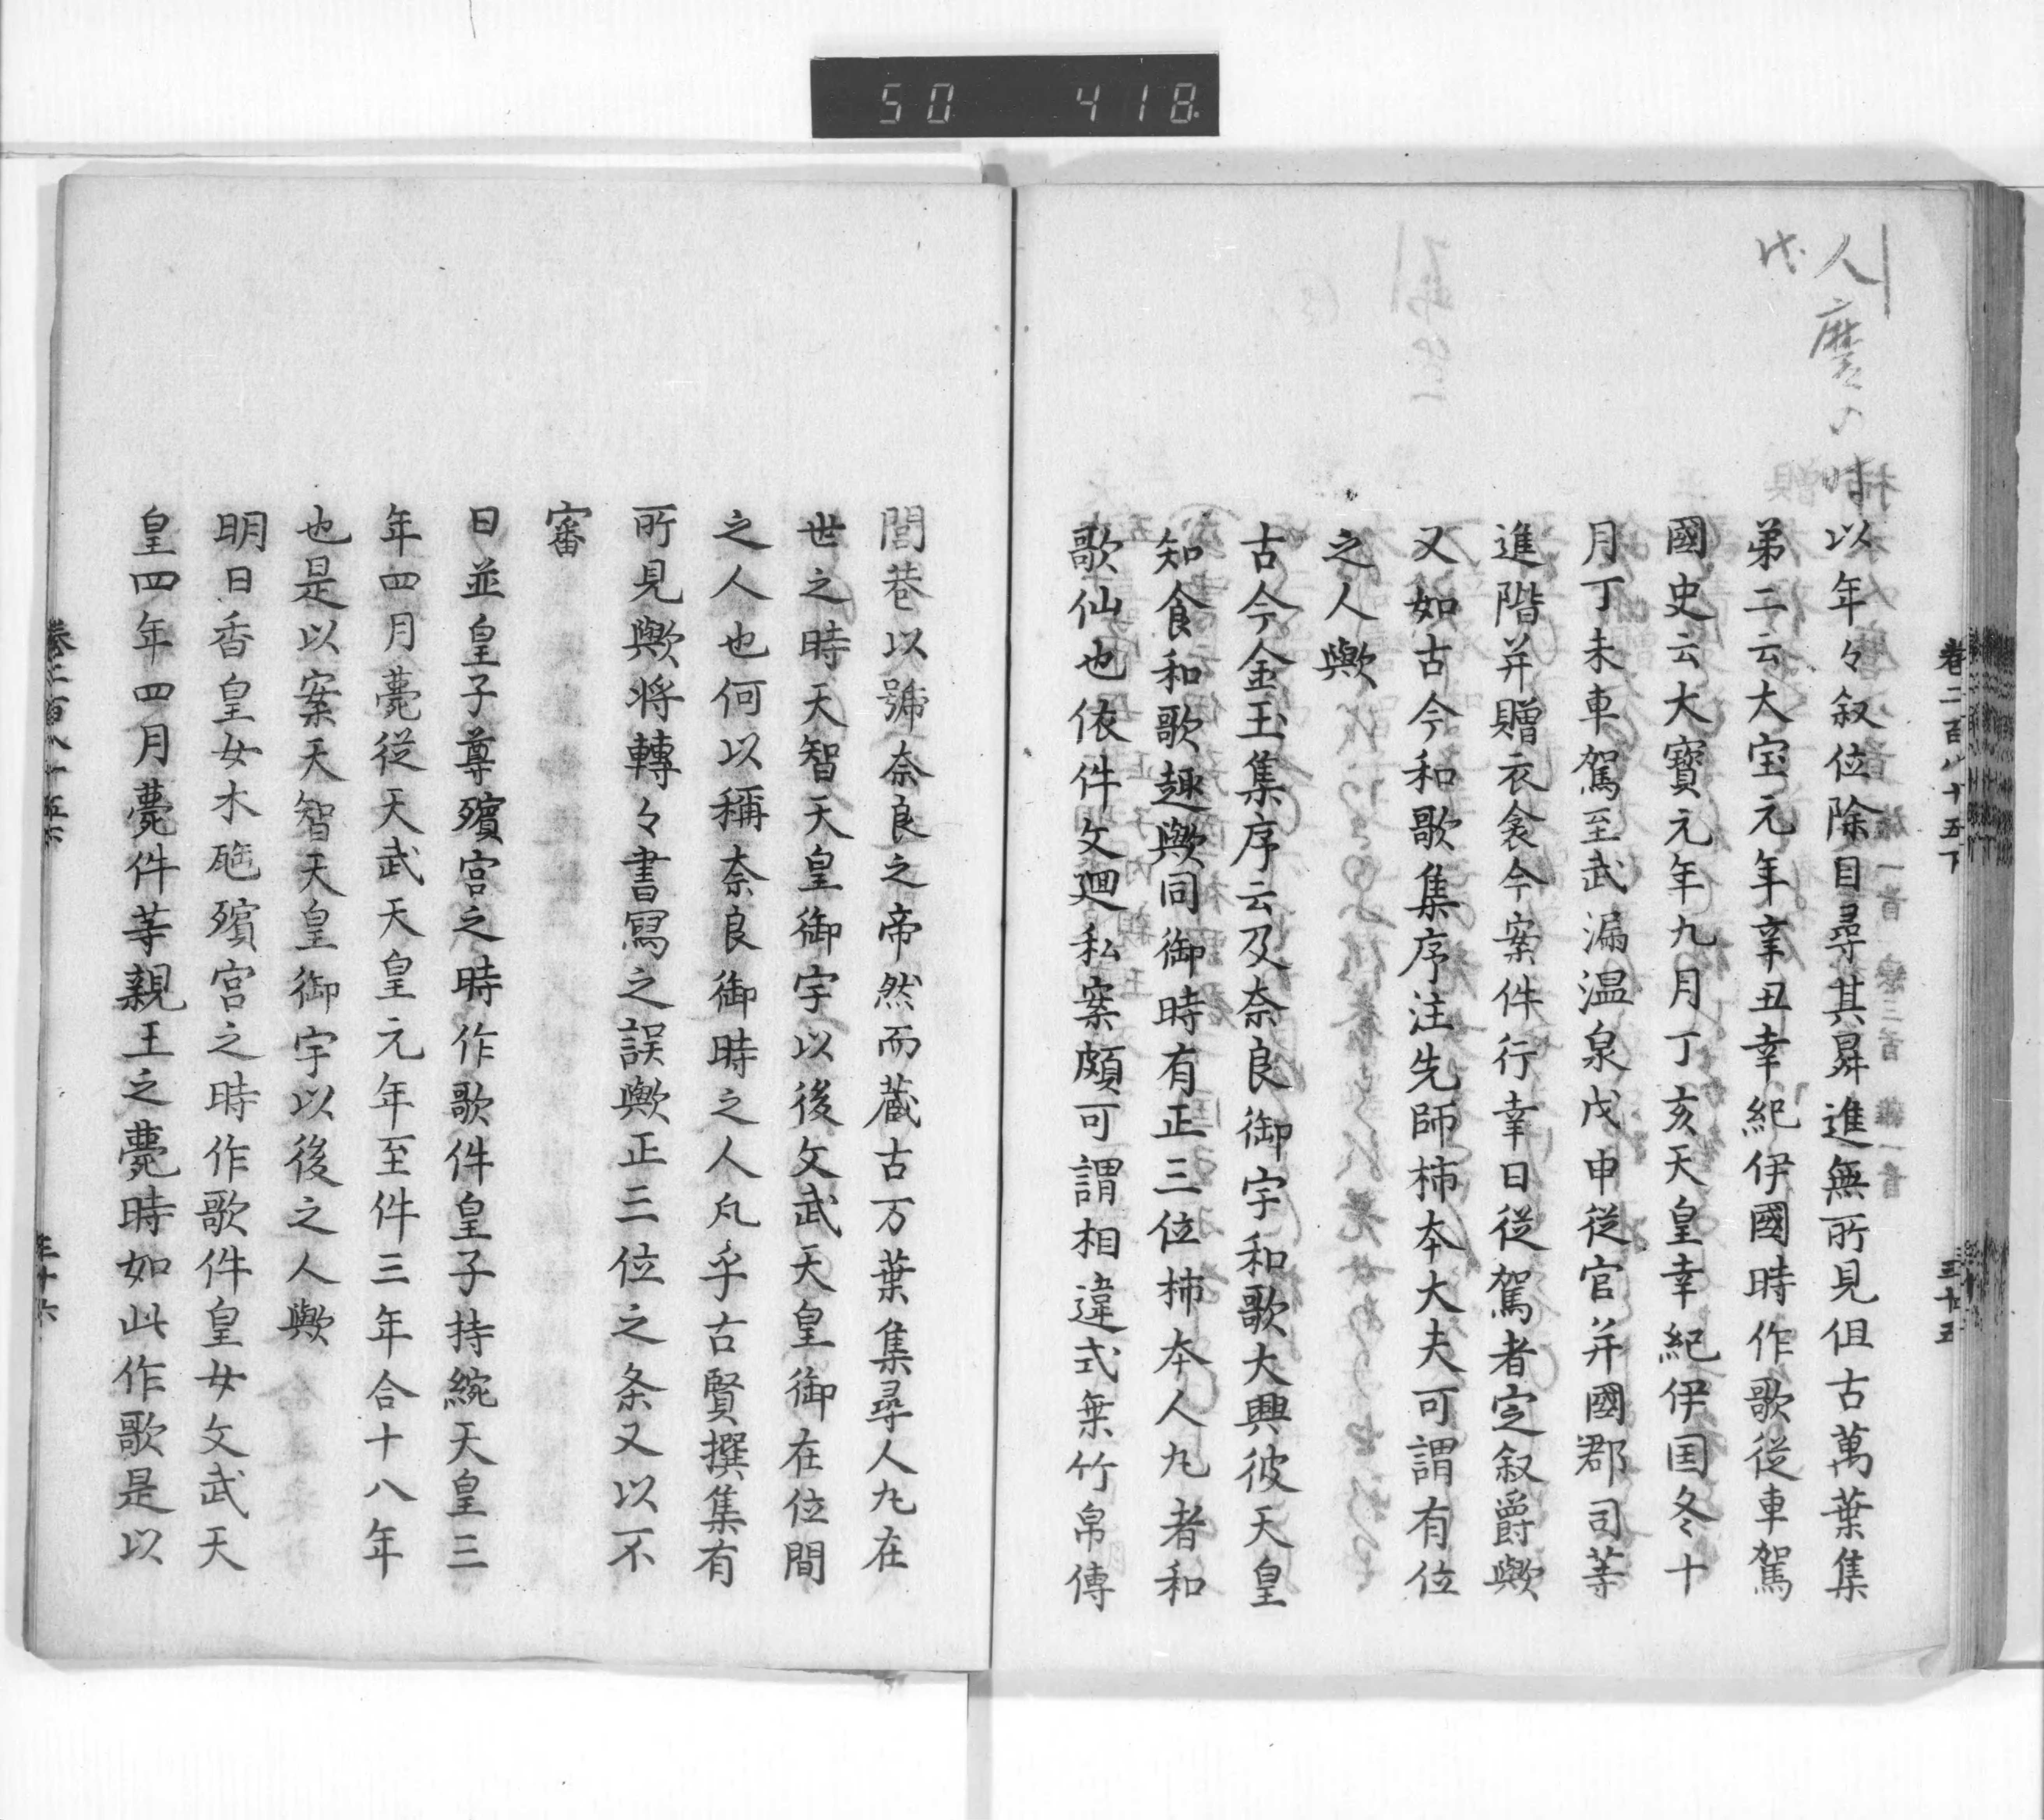 50 418
人麿
時代
以年々叙位除目尋其昇進無所見但古萬葉集
弟二云大宝元年辛丑幸紀伊國時作歌從車駕
國史云大寶元年九月丁亥天皇幸紀伊国冬十
月丁未車駕至武漏温泉戊申從官并國郡司等
進階并贈衣衾今案件行幸日從駕者定叙爵歟
又如古今和歌集序注先師柿夲大夫可謂有位
之人歟
古今金玉集序云及奈良御宇和歌大興彼天皇
知食和歌趣歟同御時有正三位柿夲人丸者和
歌仙也依件文廻私案頗可謂相違式無竹帛傳
巻二百八十五下
三十五
閭巷以號奈良之帝然而蔵古万葉集尋人丸在
世之時天智天皇御宇以後文武天皇御在位間
之人也何以稱奈良御時之人凡乎古賢撰集有
所見歟将轉々書寫之誤歟正三位之条又以不
審
日並皇子尊殯宮之時作歌件皇子持綂天皇三
年四月薨從天武天皇元年至件三年合十八年
也是以案天智天皇御宇以後之人歟
明日香皇女木𦋅殯宮之時作歌件皇女文武天
皇四年四月薨件等親王之薨時如此作歌是以